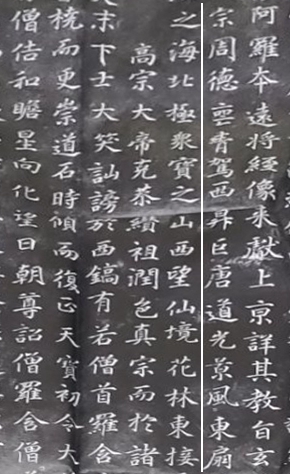 阿羅本遠將經像來獻上京詳其教旨玄
宗周德喪青駕西昇巨唐道光景風東扇
之海北極眾寶之山西望仙境花林東接
高宗大帝克恭纘祖潤色真宗而於諸
末下士大笑訕謗於西鎬有若僧首羅含
橈而更崇道石時傾而復正天寶初令大
僧佶和瞻星向化望日朝尊詔僧羅含僧